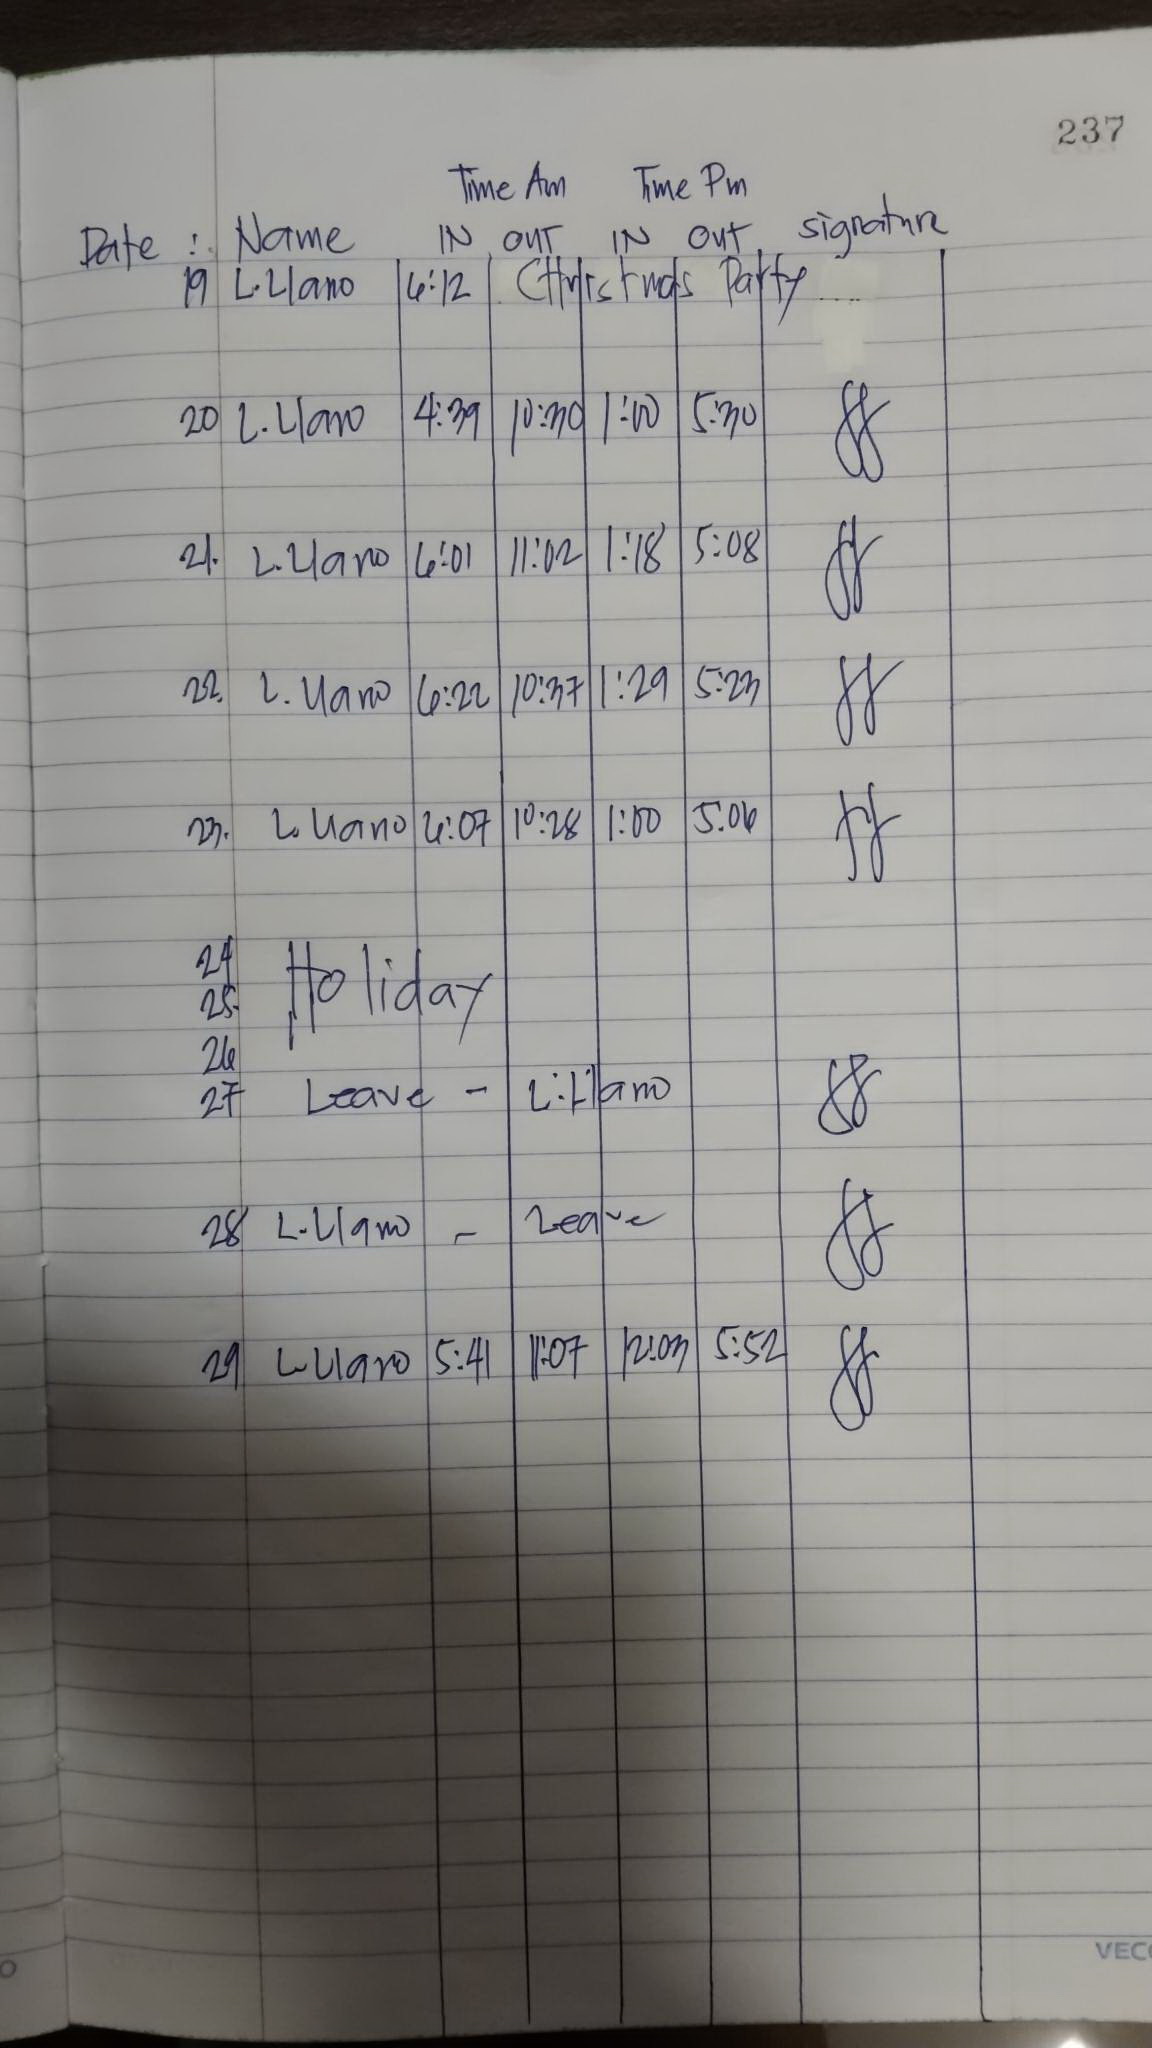 237
Time Am Time Pm
Date : Name IN OUT IN OUT signature
19 L.Llano 6:12 CHristmas Party
20 L.Llano 4:39 10:30 1:00 5:30
21. L.Llano 6:01 11:02 1:18 5:08
22. L.Llano 6:22 10:37 1:29 5:23
23. L.Llano 6:07 10:28 1:00 5:06
24
25. Holiday
26
27 Leave - L.Llano
28 L.Llano - Leave
29 L.Llano 5:41 11:07 12:03 5:52
VECO